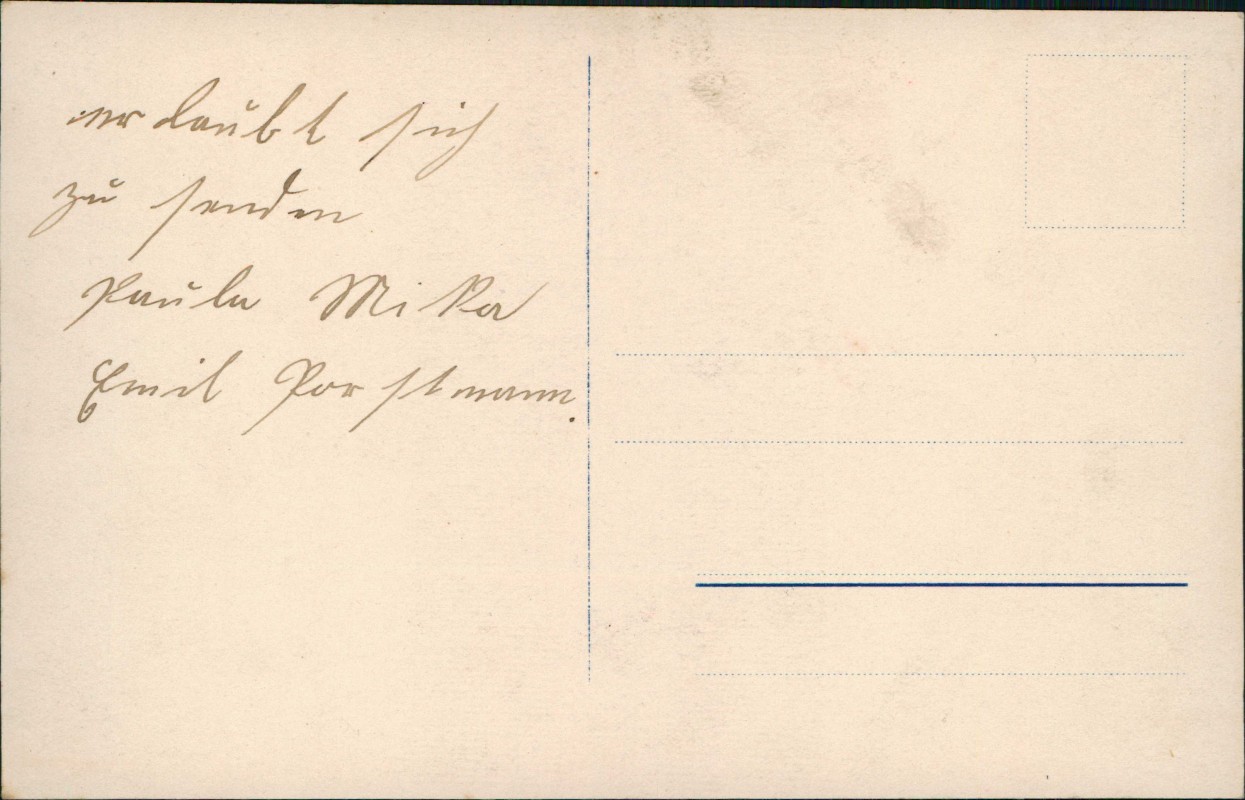 erlaubt sich
zu senden
Paula Mika
Emil Porstmann.